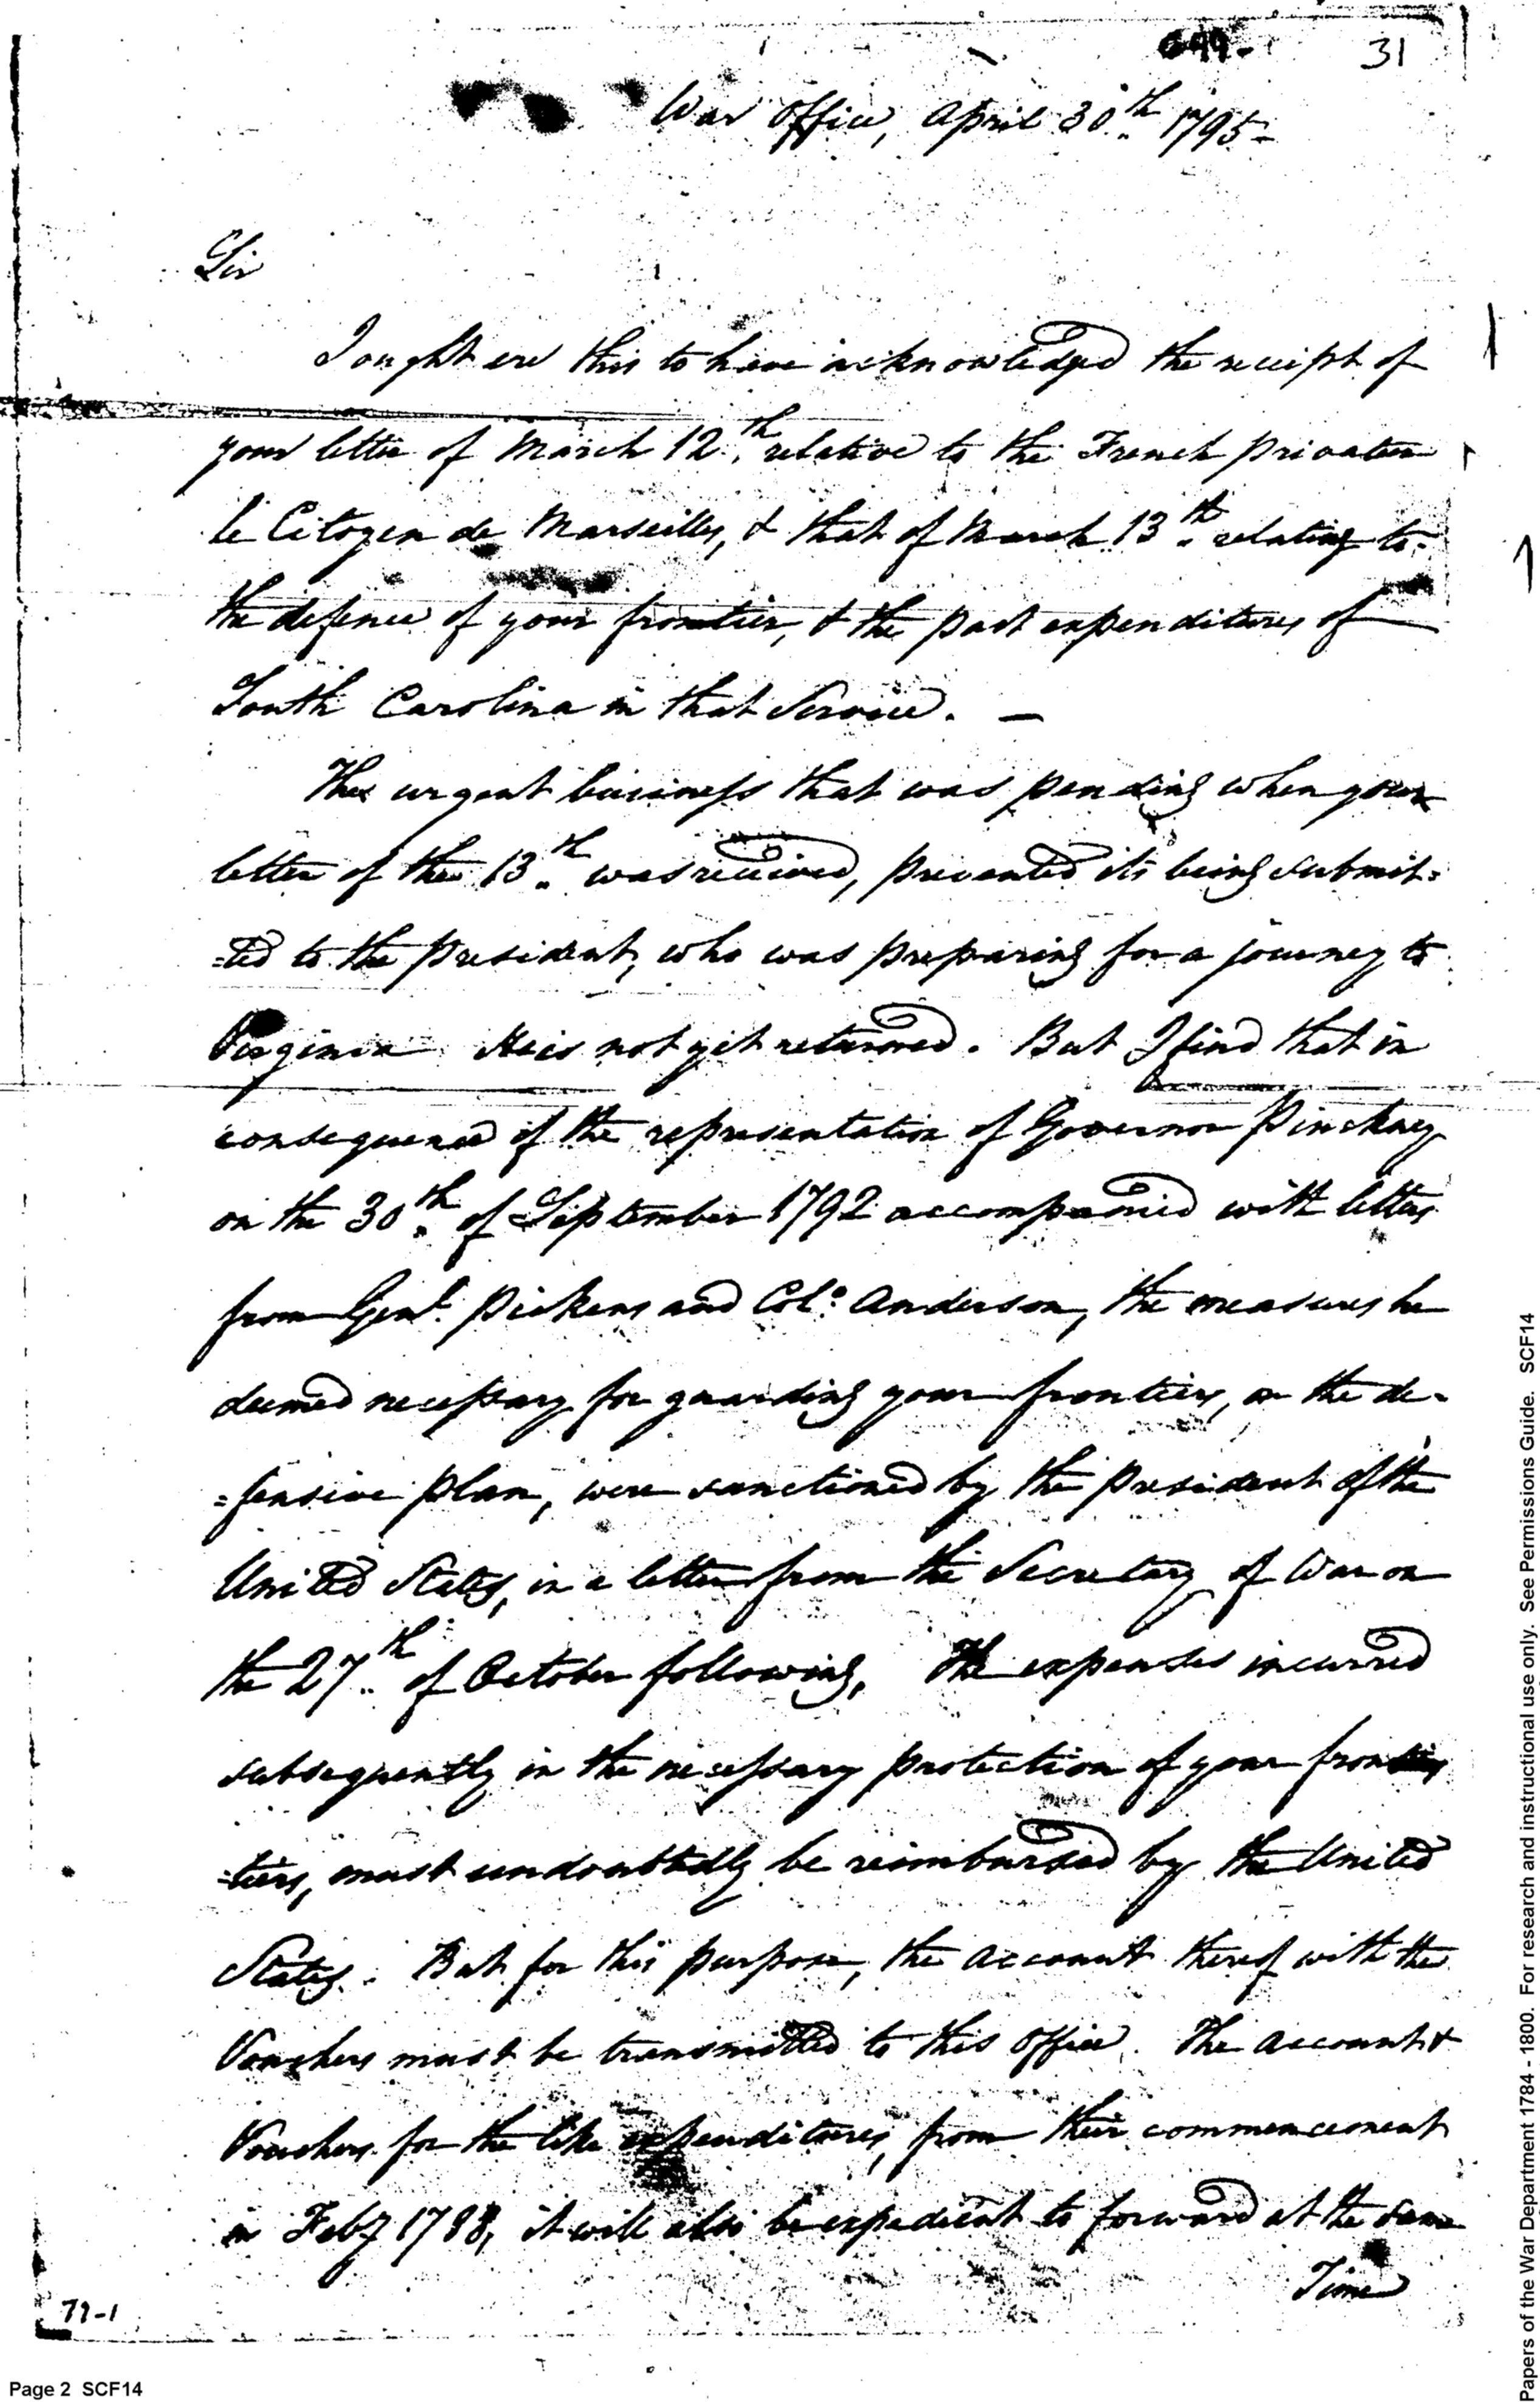 31
War Office, April 30th 1795-
Sir
I ought ere this to have acknowledged the receipt of
your letter of March 12th relative to the French privateer
le Citoyen de Marseilles, & that of March 13th relating to
the defence of your frontier, & the past expenditures of
South Carolina in that Service. —
The urgent business that was pending when your
letter of the 13th was received, prevented its being submit=
=ted to the President, who was preparing for a journey to
Virginia He is not yet returned. But I find that in
consequence of the representation of Governor Pinckney
on the 30th of September 1792 accompanied with letters
from Genl. Pickens and Colo. Anderson, the measures he
deemed necessary for guarding your frontiers, on the de=
=fensive plan, were sanctioned by the President of the
United States, in a letter from the Secretary of War on
the 27th of October following. The expenses incurred
subsequently in the necessary protection of your fron
=tiers, must undoubtedly be reimbursed by the United
States. But for this purpose, the account thereof with the
Vouchers must be transmitted to this Office. The account &
Vouchers for the like expenditures, from their commencement
in Feby 1788, it will also be expedient to forward at the same
Time
79-1
Page 2 SCF14
Papers of the War Department 1784 - 1800. For research and instructional use only. See Permissions Guide. SCF14